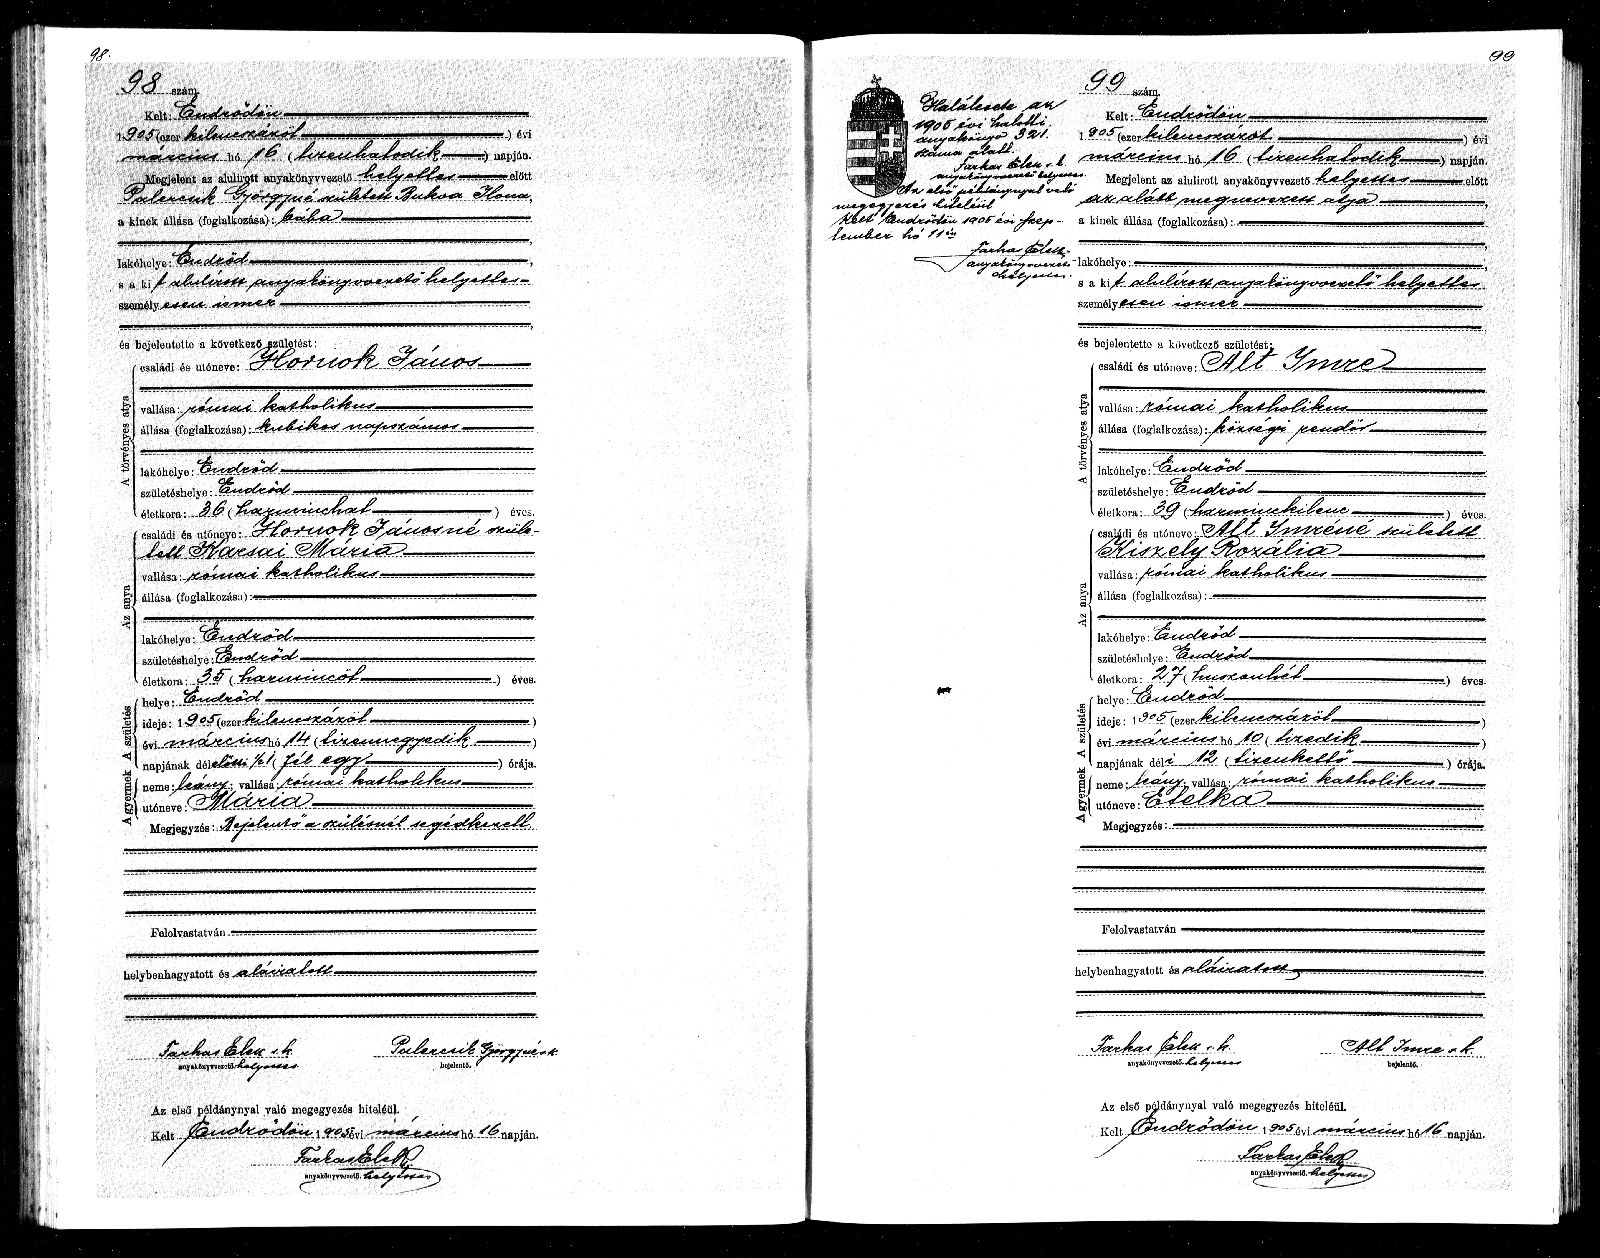 98.
98 szám.
Kelt: Endrődön
1905 (ezer kilenczázöt) évi
március hó 16 (tizenhatodik) napján.
Megjelent az alulirott anyakönyvvezető helyettes előtt
Palercsik Györgyné született Bukva Ilona,
a kinek állása (foglalkozása): bába
lakóhelye: Endrőd,
s a kit alulírott anyakönyvvezető helyettes
személyesen ismer
és bejelentette a következő születést:
A törvényes atya
családi és utóneve: Hornok János
vallása: római katholikus
állása (foglalkozása): kubikos napszámos
lakóhelye: Endrőd
születéshelye: Endrőd
életkora: 36 (harminchat) éves.
Az anya
családi és utóneve: Hornok Jánosné szüle-
tett Karsai Mária
vallása: római katholikus
állása (foglalkozása):
lakóhelye: Endrőd
születéshelye: Endrőd
életkora: 35 (harmincöt) éves.
A születés
helye: Endrőd
ideje: 1905 (ezer kilenczázöt)
évi március hó 14 (tizennegyedik)
napjának délelőtti ½1 (fél egy) órája.
A gyermek
neme: leány; vallása: római katholikus
utóneve: Mária
Megjegyzés: Bejelentő a szülésnél segédkezett
Felolvastatván
helybenhagyatott és aláiratott
Farkas Elek s.k. Palercsik Györgyné s.k.
anyakönyvvezető helyettes bejelentő.
Az első példánynyal való megegyezés hiteléül.
Kelt Endrődön 1905 évi március hó 16 napján.
Farkas Elek
anyakönyvvezető helyettes
99
Halálesete az
1905 évi halotti
anyakönyv 321.
száma alatt.
Farkas Elek s.k.
anyakönyvvezető helyettes.
Az első példánynyal való
megegyezés hiteléül
Kelt Endrődön 1905 évi szep-
tember hó 11én
Farkas Elek
anyakönyvvezető
helyettes.
99 szám.
Kelt: Endrődön
1905 (ezer kilenczázöt) évi
március hó 16 (tizenhatodik) napján.
Megjelent az alulirott anyakönyvvezető helyettes előtt
az alább megnevezett atya
a kinek állása (foglalkozása):
lakóhelye:
s a kit alulírott anyakönyvvezető helyettes
személyesen ismer
és bejelentette a következő születést:
A törvényes atya
családi és utóneve: Alt Imre
vallása: római katholikus
állása (foglalkozása): községi rendőr
lakóhelye: Endrőd
születéshelye: Endrőd
életkora: 39 (harminckilenc) éves.
Az anya
családi és utóneve: Alt Imréné született
Kiszely Rozália
vallása: római katholikus
állása (foglalkozása):
lakóhelye: Endrőd
születéshelye: Endrőd
életkora: 27 (huszonhét) éves.
A születés
helye: Endrőd
ideje: 1905 (ezer kilenczázöt)
évi március hó 10 (tizedik)
napjának déli 12 (tizenkettő) órája.
A gyermek
neme: leány; vallása: római katholikus
utóneve: Etelka
Megjegyzés:
Felolvastatván
helybenhagyatott és aláiratott
Farkas Elek s.k. Alt Imre s.k.
anyakönyvvezető. helyettes bejelentő.
Az első példánynyal való megegyezés hiteléül.
Kelt Endrődön 1905 évi március hó 16 napján.
Farkas Elek
anyakönyvvezető. helyettes